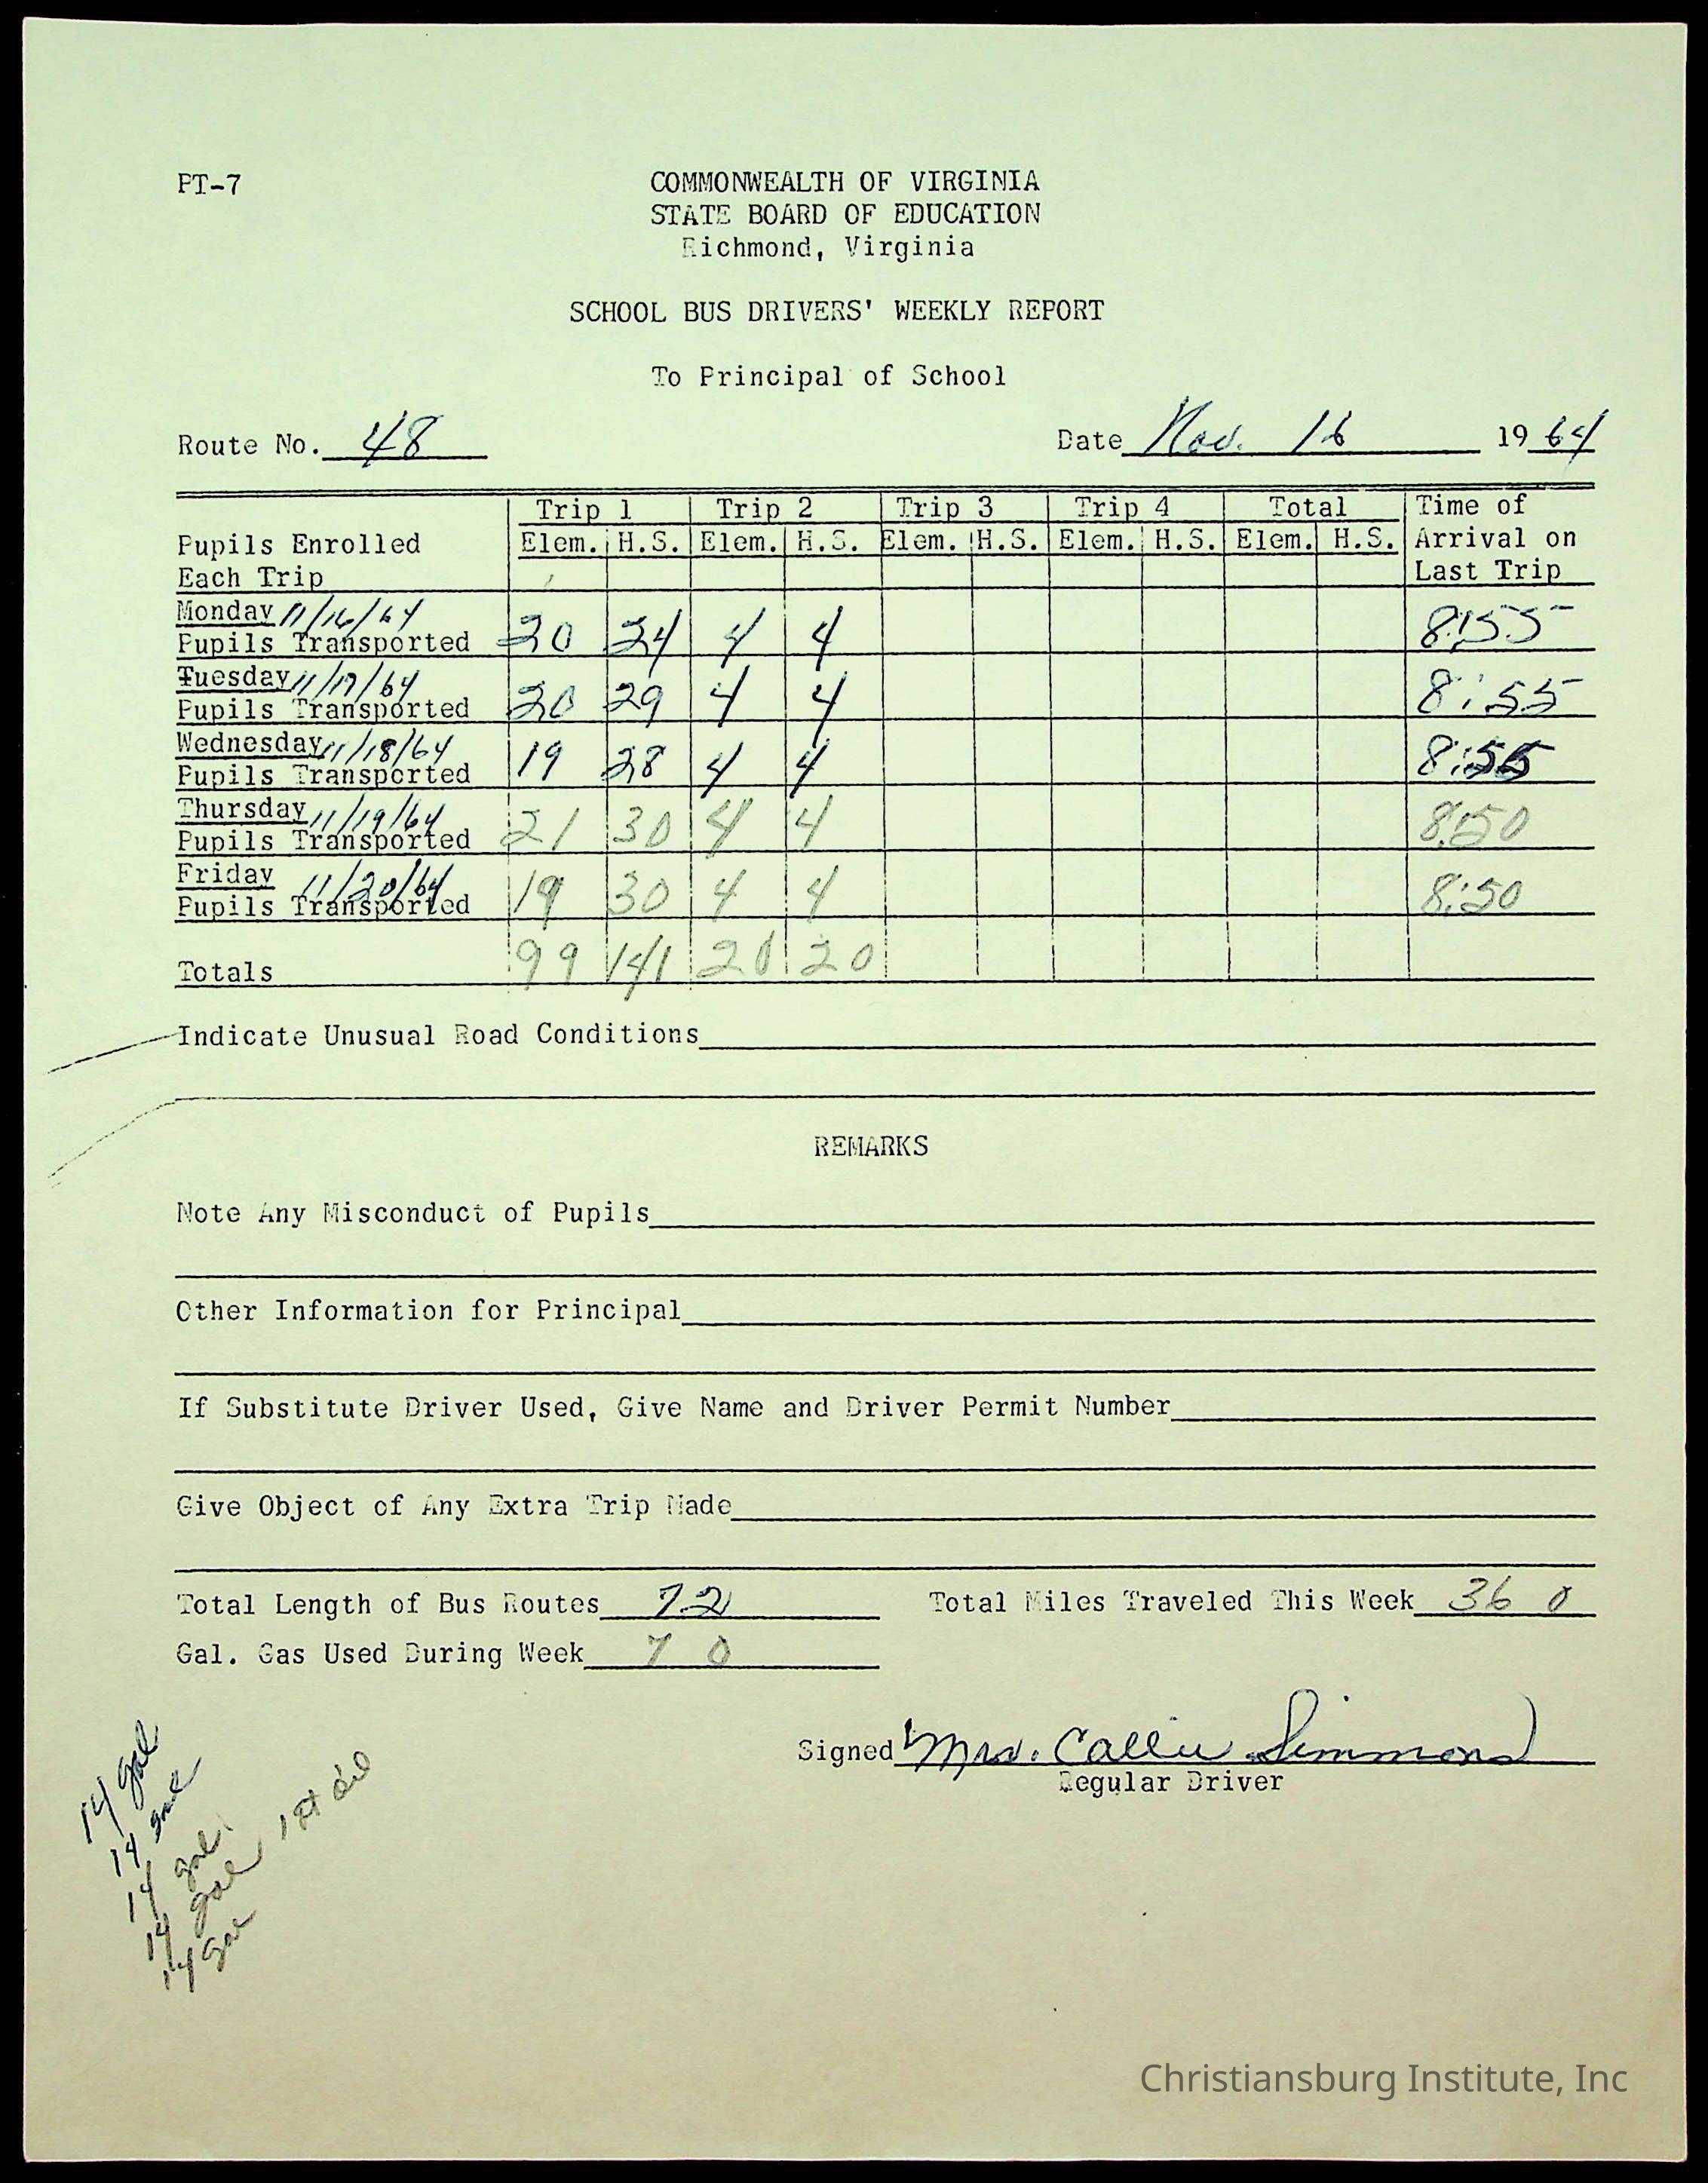 PT-7
COMMONWEALTH OF VIRGINIA
STATE BOARD OF EDUCATION
Richmond, Virginia
SCHOOL BUS DRIVERS' WEEKLY REPORT
To Principal of School
Route No. 48 Date Nov. 16 1964
Trip 1 Trip 2 Trip 3 Trip 4 Total Time of
Pupils Enrolled Elem. H.S. Elem. H.S. Elem. H.S. Elem. H.S. Elem. H.S. Arrival on
Each Trip Last Trip
Monday 11/16/64
Pupils Transported 20 24 4 4 8:55
Tuesday 11/17/64
Pupils Transported 20 29 4 4 8:55
Wednesday 11/18/64
Pupils Transported 19 28 4 4 8:55
Thursday 11/19/64
Pupils Transported 21 30 4 4 8:50
Friday 11/20/64
Pupils Transported 19 30 4 4 8:50
Totals 99 141 20 20
Indicate Unusual Road Conditions
REMARKS
Note Any Misconduct of Pupils
Other Information for Principal
If Substitute Driver Used, Give Name and Driver Permit Number
Give Object of Any Extra Trip Made
Total Length of Bus Routes 72 Total Miles Traveled This Week 360
Gal. Gas Used During Week 70
Signed Mrs. Callie Simmons
Regular Driver
14 gal
14 gal
14 gal.
14 gal 1 qt oil
14 gal
Christiansburg Institute, Inc